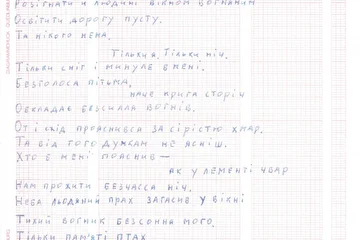 Розігнати в людині вікном вогняним
Освітити дорогу пусту.
Та нікого нема,
Тільки я, тільки ніч,
Тільки сніг і минуле в мені.
Безголоса пітьма,
наче крига сторіч
Обкладає безсилля вогнів.
От і схід прояснився за сірістю хмар,
Та від того думкам не ясніш.
Хто б мені пояснив—
як у лементі чвар
Нам прожити безчасся ніч.
Неба льодяний прах загасив у вікні
Тихий вогник безсоння мого.
Тільки пам'яті птах